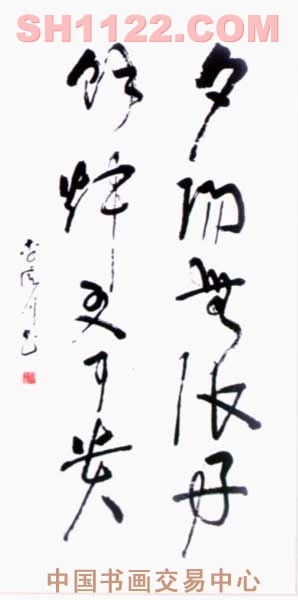 SH1122.COM
夕陽無限好
餘煇更可貴
中国书画交易中心